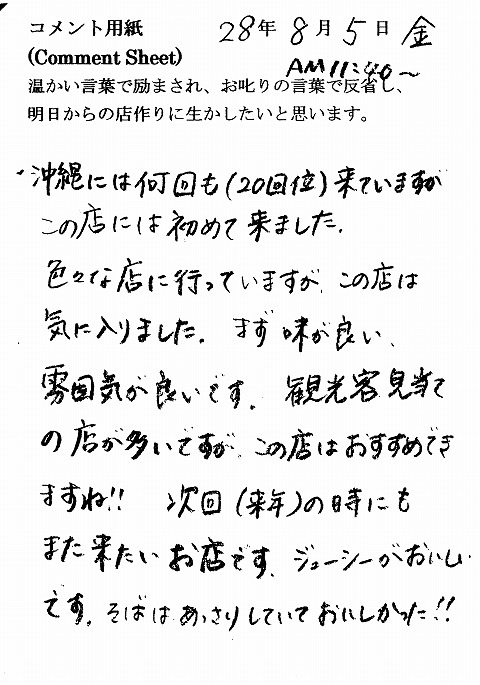 コメント用紙 28年 8月 5日 金
(Comment Sheet) AM11:40～
温かい言葉で励まされ、お叱りの言葉で反省し、
明日からの店作りに生かしたいと思います。
沖縄には何回も(20回位)来ていますが
この店には初めて来ました.
色々な店に行っていますが この店は
気に入りました. まず味が良い、
雰囲気が良いです. 観光客見当て
の店が多いですが、この店はおすすめでき
ますね!! 次回(来年)の時にも
また来たいお店です、ジューシーがおいしい
です。そばはあっさりしていておいしかった!!